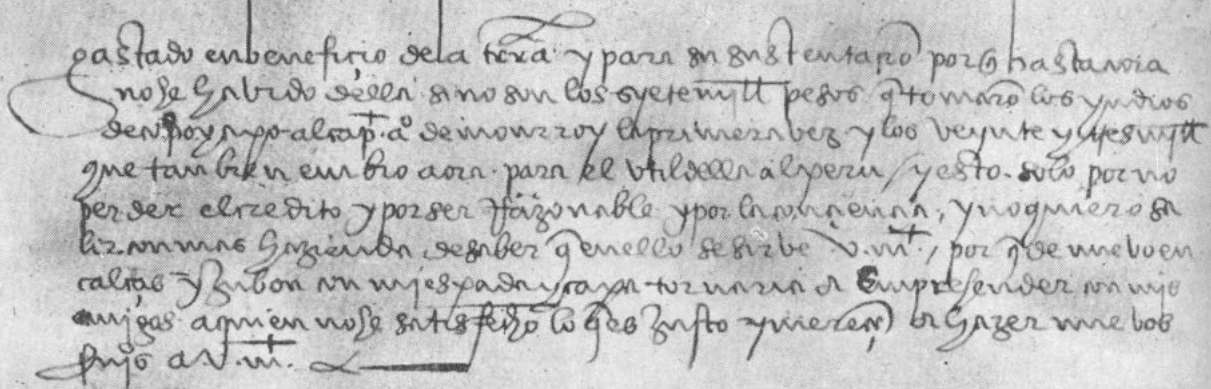 gastado en beneficio dela tierra y para su sustentaçio porq hasta aora
no he habido della sino son los syete mill pesos q tomarõ los yndios
de copoyapo al capan aº de monrroy la primera vez y los veynte y tres mill
que tanbien enbio aora para el vtil della al peru / y esto solo por no
perder el credito y por ser rrazonable y por la conçiençia, y no quiero sa
lir con mas hazienda de saber q en ello se sirbe v. m., por q de nuebo en
calças y jubon con mi espada y capa tornaria a Empreender con mis
amigos a quien no he satisfecho lo q es justo y mereçẽ a hazer nuebos
serujos a V. m.